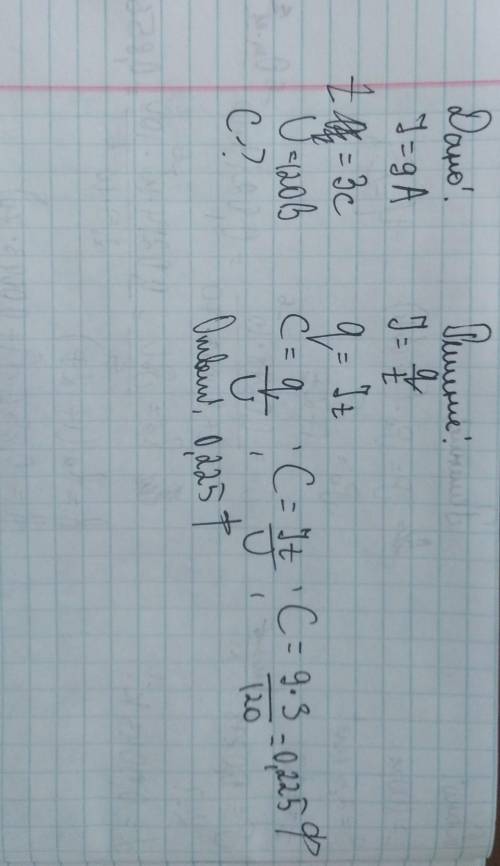 Дано:
J = 9A
t = 3с
U = 120В
C - ?
Решение:
J = q/t
q = Jt
C = q/U, C = Jt/U, C = 9·3/120 = 0,225 Ф
Ответ: 0,225 Ф